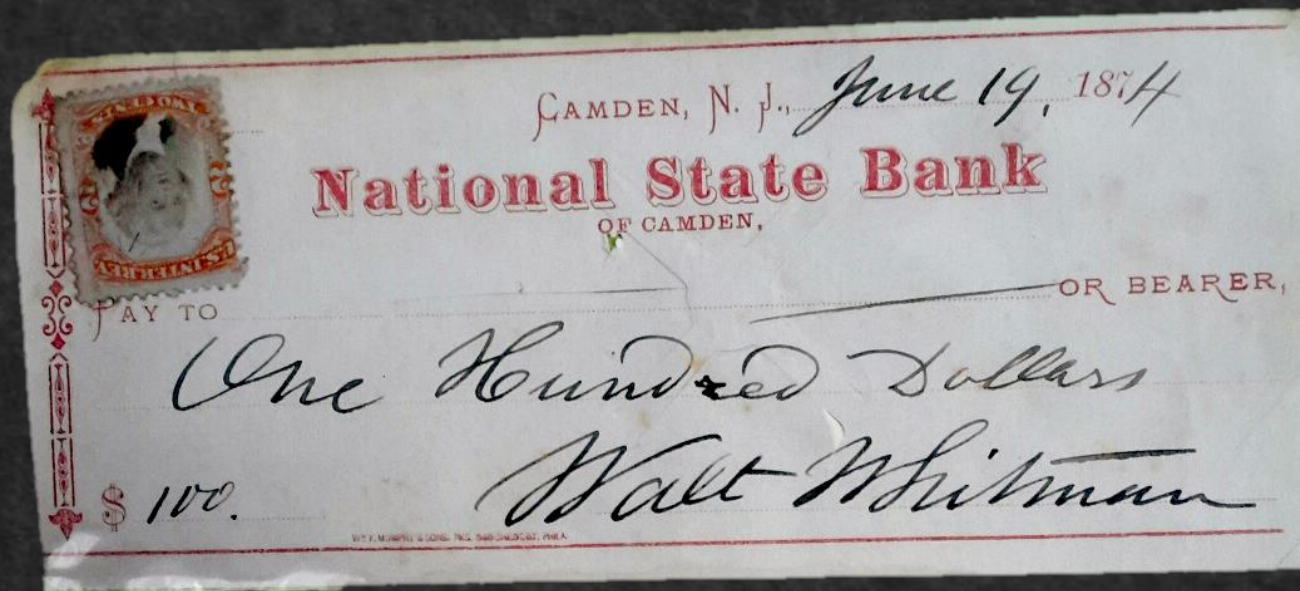 CAMDEN, N. J., June 19, 1874
National State Bank
OF CAMDEN,
PAY TO OR BEARER,
One Hundred Dollars
$ 100.
Walt Whitman
TWO CENTS
2 2
U.S. INTER. REV.